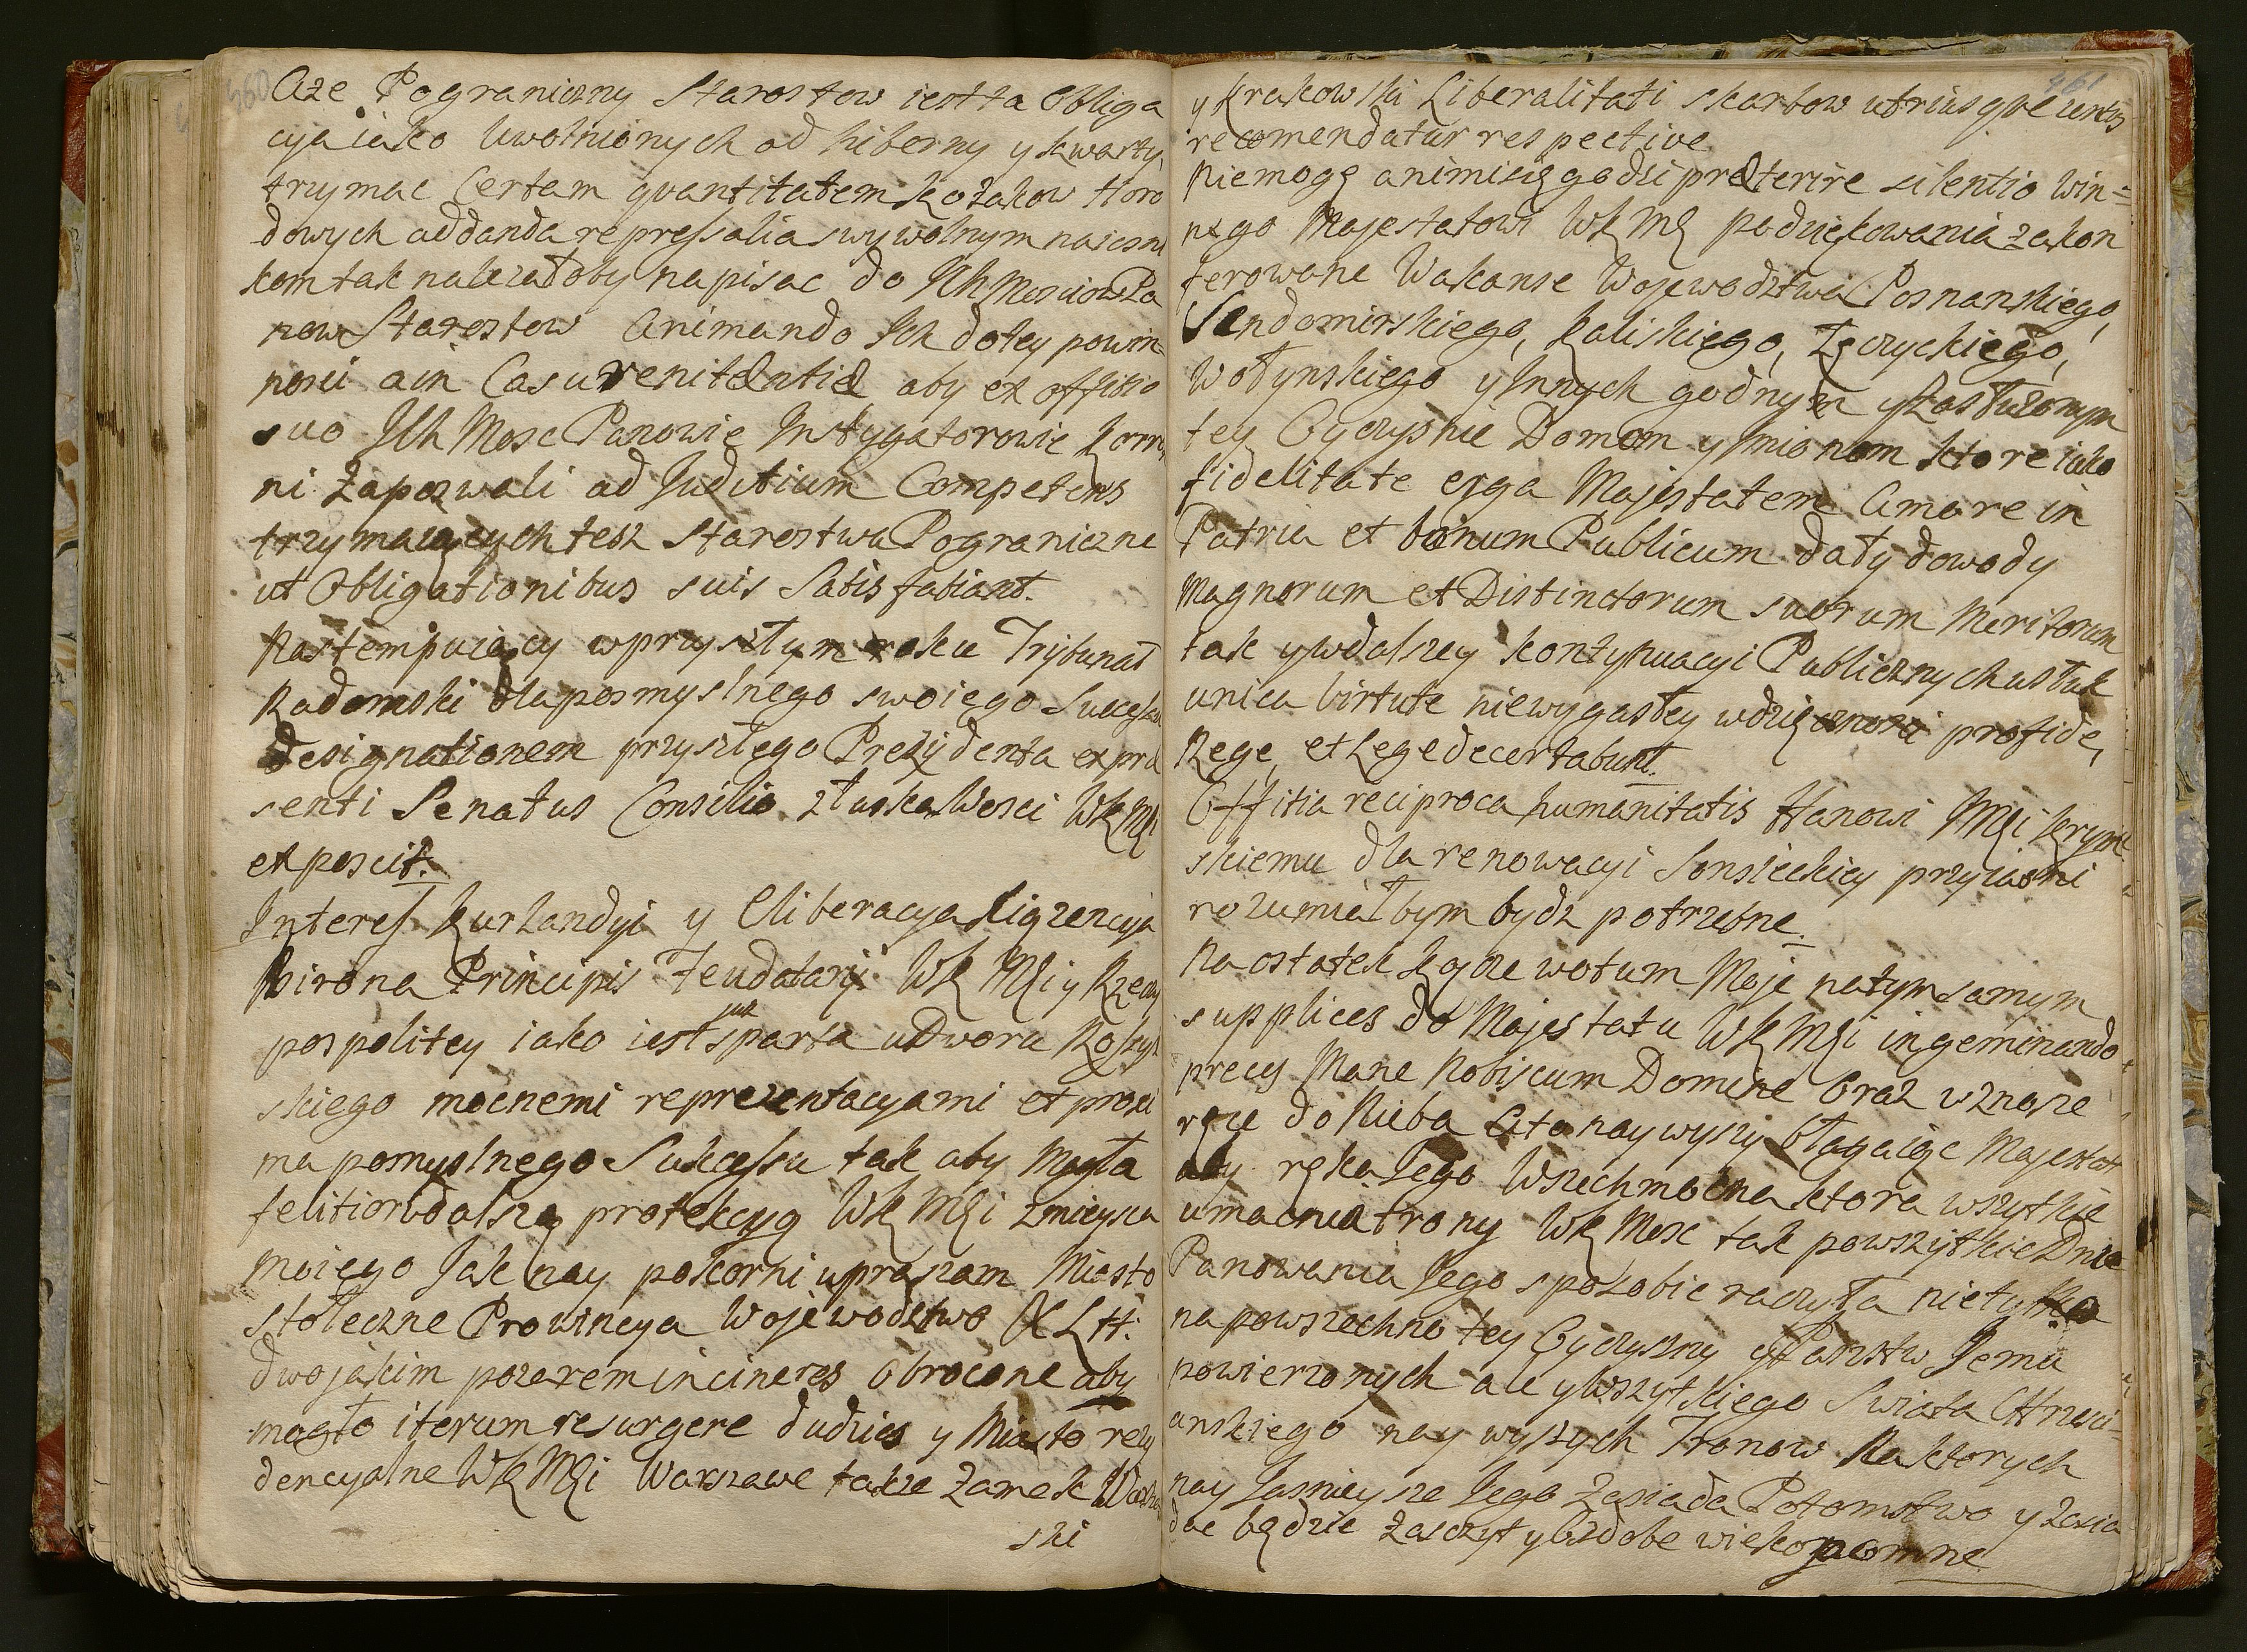 560
Aze Pograniczny Starostow iest ta Obliga
cyia iako Uwolnionych od hiberny y kwarty,
trzymac Certam quantitatem Kozakow Horo
dowych ad danda repressalia swywolnym naiezni
kom tak nalezałoby napisac do Ich Mosciow Pa
now Starostow Animando Ich do tey powin=
nosci a in Casu renitentiæ aby ex offitio
suo Ich Mosc Panowie Instygatorowie Korro
ni zapozwali ad Juditium Competens
trzymaiących tesz Starostwa Pograniczne
ut Obligationibus suis Satisfatiant.
Nastempuiący w przyszłym roku Trybunał
Radomski dla posmyslnego swoiego Sukcessu
Designationem przyszłego Prezydenta ex præ
senti Senatus Consilio z łaskawosci WK Mci
exposcit.
Interess Kurlandyi y Eliberacya Xięzencya
Birona Principis Feudatarij WK Mci y Rzeczy
pospolitey iako iest iuz sparta u Dworu Rossyi
skiego mocnemi reprezentacyami et proxi
ma pomyslnego Sukcessu tak aby mogła
felitiori dalszą protekcyą WK Mci z mieysca
moiego Jak nay pokorni upraszam Miasto
stołeczne Prowincya Wojewodztwo X L tt:
dwojakim pozarem in cineres obrocone aby
mogło iterum resurgere dudzies y Miasto rezy
dencyalne WK Mci Warszawe takze Zamek Warsza
ski
461
y Krakowski Liberalitati skarbow utriusque gentis
recomendatur respective.
Niemogę ani mi się godzi præterire silentio win=
nego Majestatowi WK Mci podziękowania za kon
ferowane Wakanse Wojewodztwa Posnanskiego,
Sendomirskiego, Kaliskiego, Łęczyckiego,
Wołynskiego y Innych godnym y Zasłuzonym
tey Oyczysnie Domom y Imionom ktore iako
fidelitate erga Majestatem Amore in
Patria et bonum Publicum dały dowody
Magnorum et Distinctorum suorum Meritorum
tak y w dalszey kontynuacyi Publicznych usług
unica virtute niewygasłey wdzięcznosci pro fide,
Rege, et Lege decertabunt.
Offitia reciproca humanitatis Hanowi Mci Krym
skiemu dla renowacyi Sonsieckiey przyiazni
rozumiałbym bydz potrzebne.
Na ostatek koncze wotum Moje na tym samym
supplices do Majestatu WK Mci ingeminando
preces Mane Nobiscum Domine Oraz wznosze
ręce do Nieba Ato naywyszy błagaiąc Majestat
aby ręka Jego Wszechmocna ktora wszytkie
umacnia trony WK Mosc tak po wszytkie Dnie
Panowania Jego sposobic raczyła nietylko
na powszechno tey Oyczyzny y Panstw Jemu
powierzonych ale y Wszytkiego Swiata Chrzesci=
anskiego nay wyszych Tronow Na ktorych
nay Jasnieysze Jego Zasiada Potomstwo y Zasia
dac będzie zasczyt y Ozdobe wiekopomne